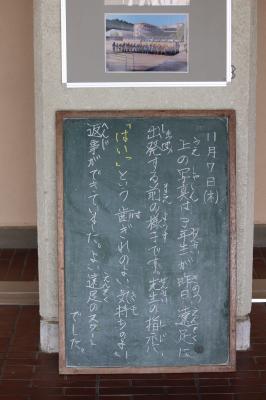 11月7日(木)
上の写真は3年生が昨日、遠足に
出発する前の様子です。先生の指示に
「はいっ」という歯ぎれのよい、気持ちのよい
返事ができていました。よい遠足のスタート
でした。